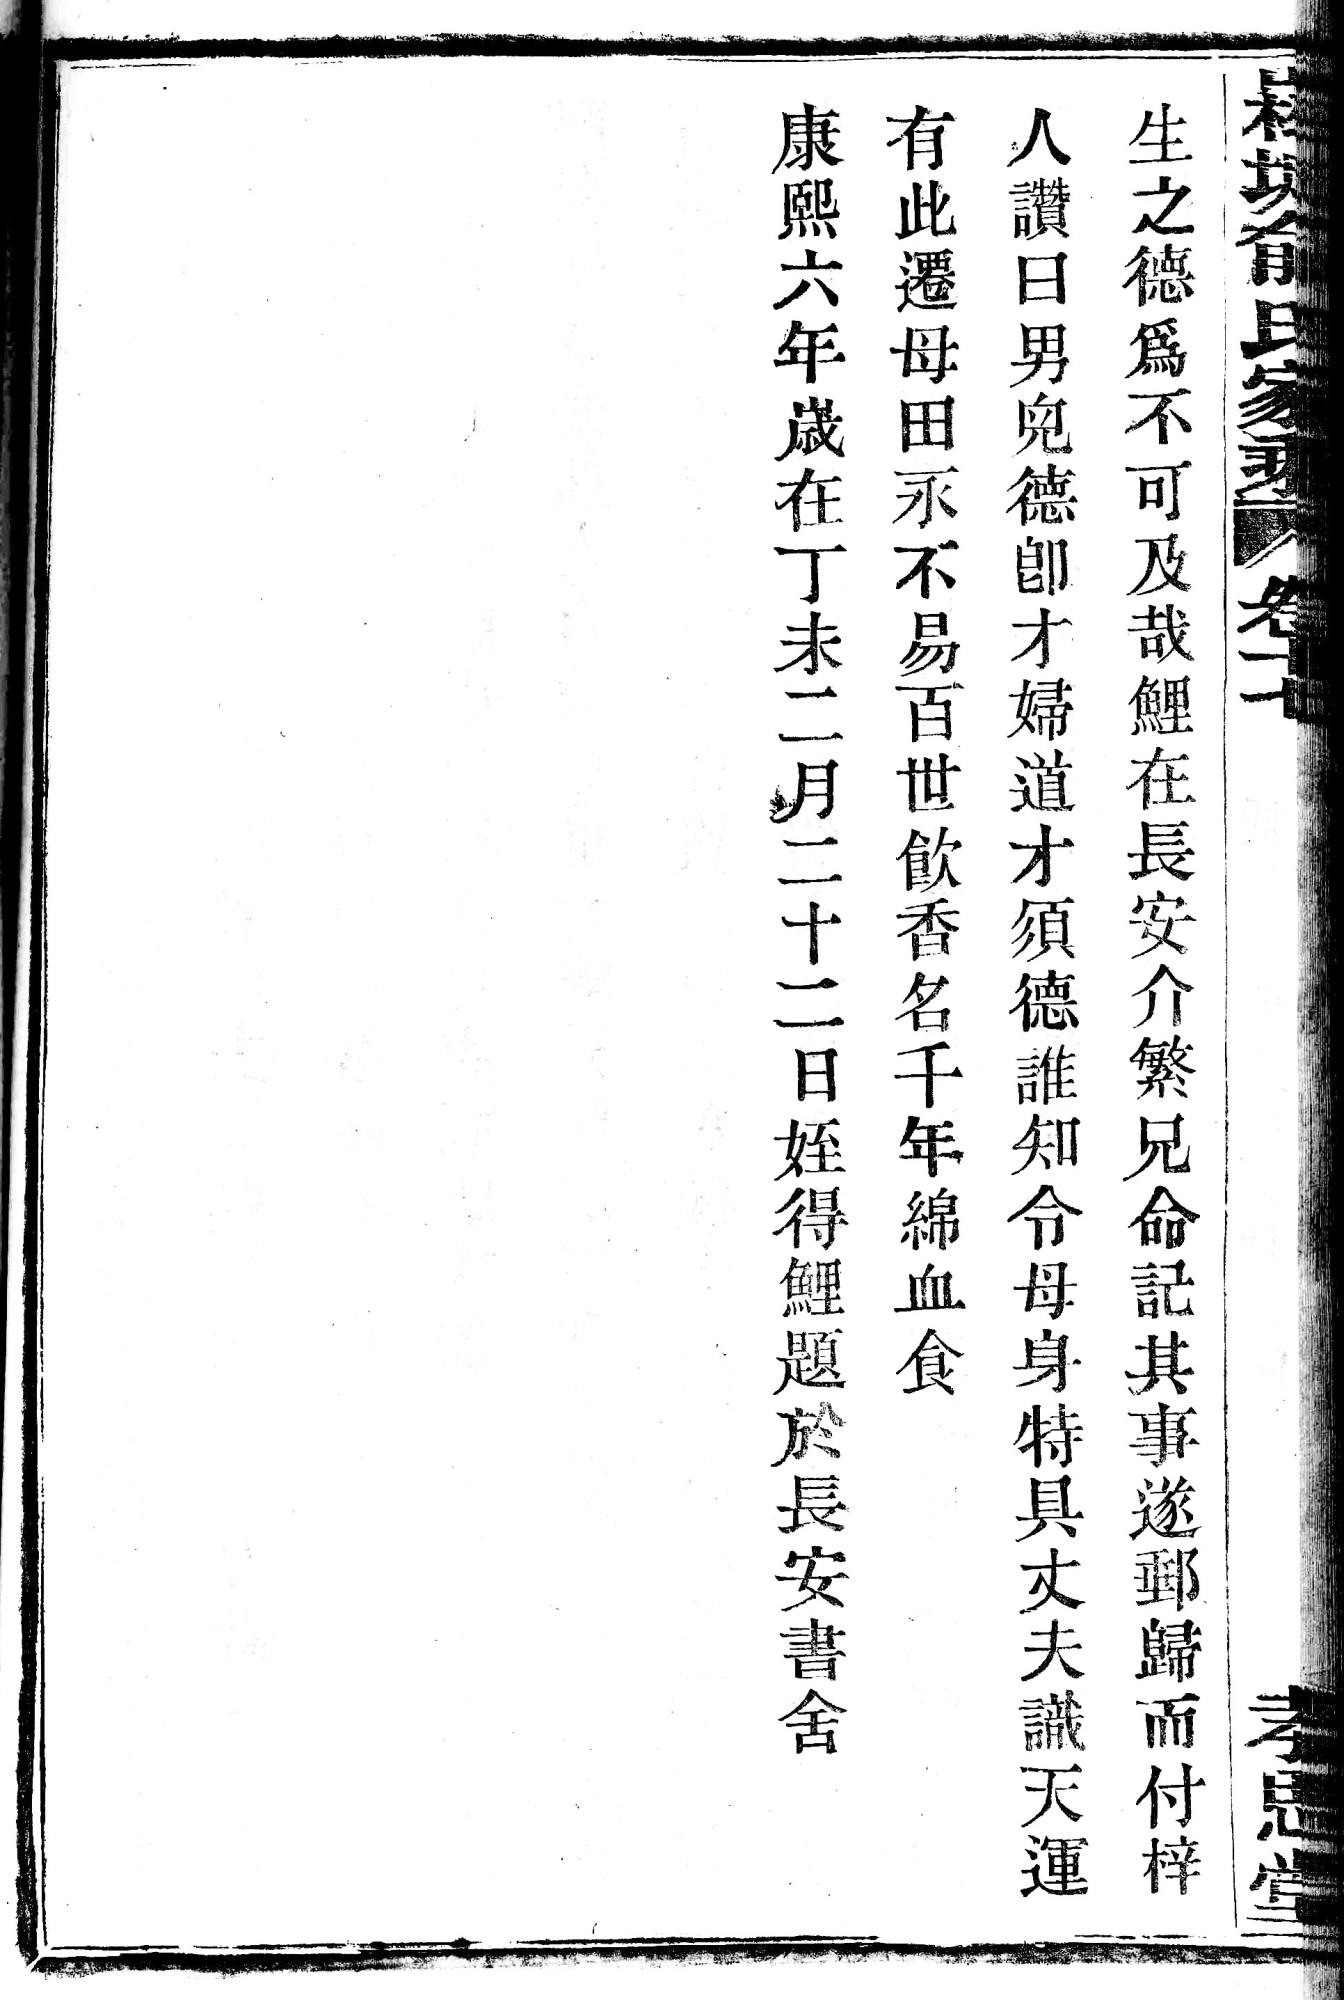 俞氏家乘 卷十七 孝思堂
生之德爲不可及哉鯉在長安介繁兄命記其事遂郵歸而付梓
人讚曰男兒德卽才婦道才須德誰知令母身特具丈夫識天運
有此遷母田永不易百世飮香名千年綿血食
康熙六年歲在丁未二月二十二日姪得鯉題於長安書舍